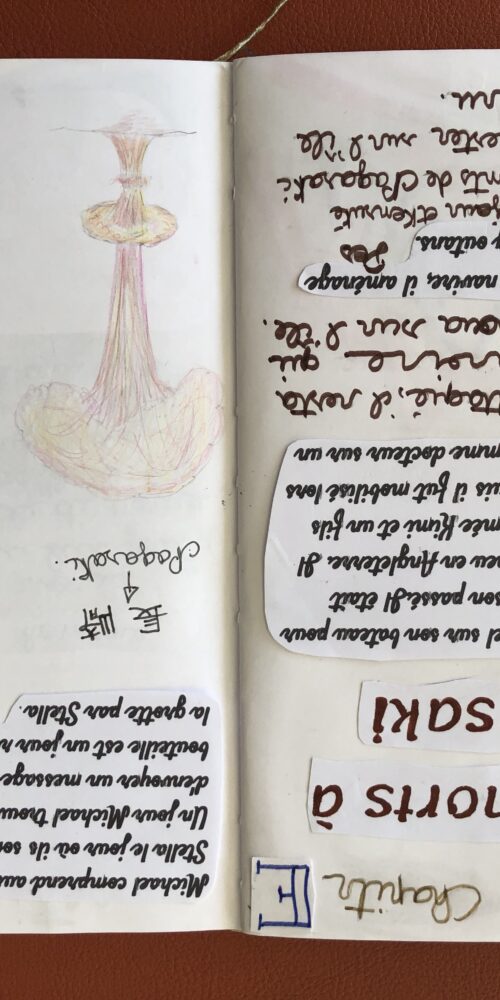 Chapitr
orts à
saki
el sur son bateau pour
son passé. Il était
peu en Angleterre. Il
mée Kimi et un fils
uis il fut mobilisé lors
mme docteur sur un
ttaqué, il resta
qui
oua sur l'île.
navire, il aménage
outans.
nts de Nagasaki
ester sur l'île
nu.
Michael comprend au
Stella le jour où ils son
Un jour Michael trouv
d'envoyer un message
bouteille est un jour r
la grotte par Stella.
長崎
Nagasaki.